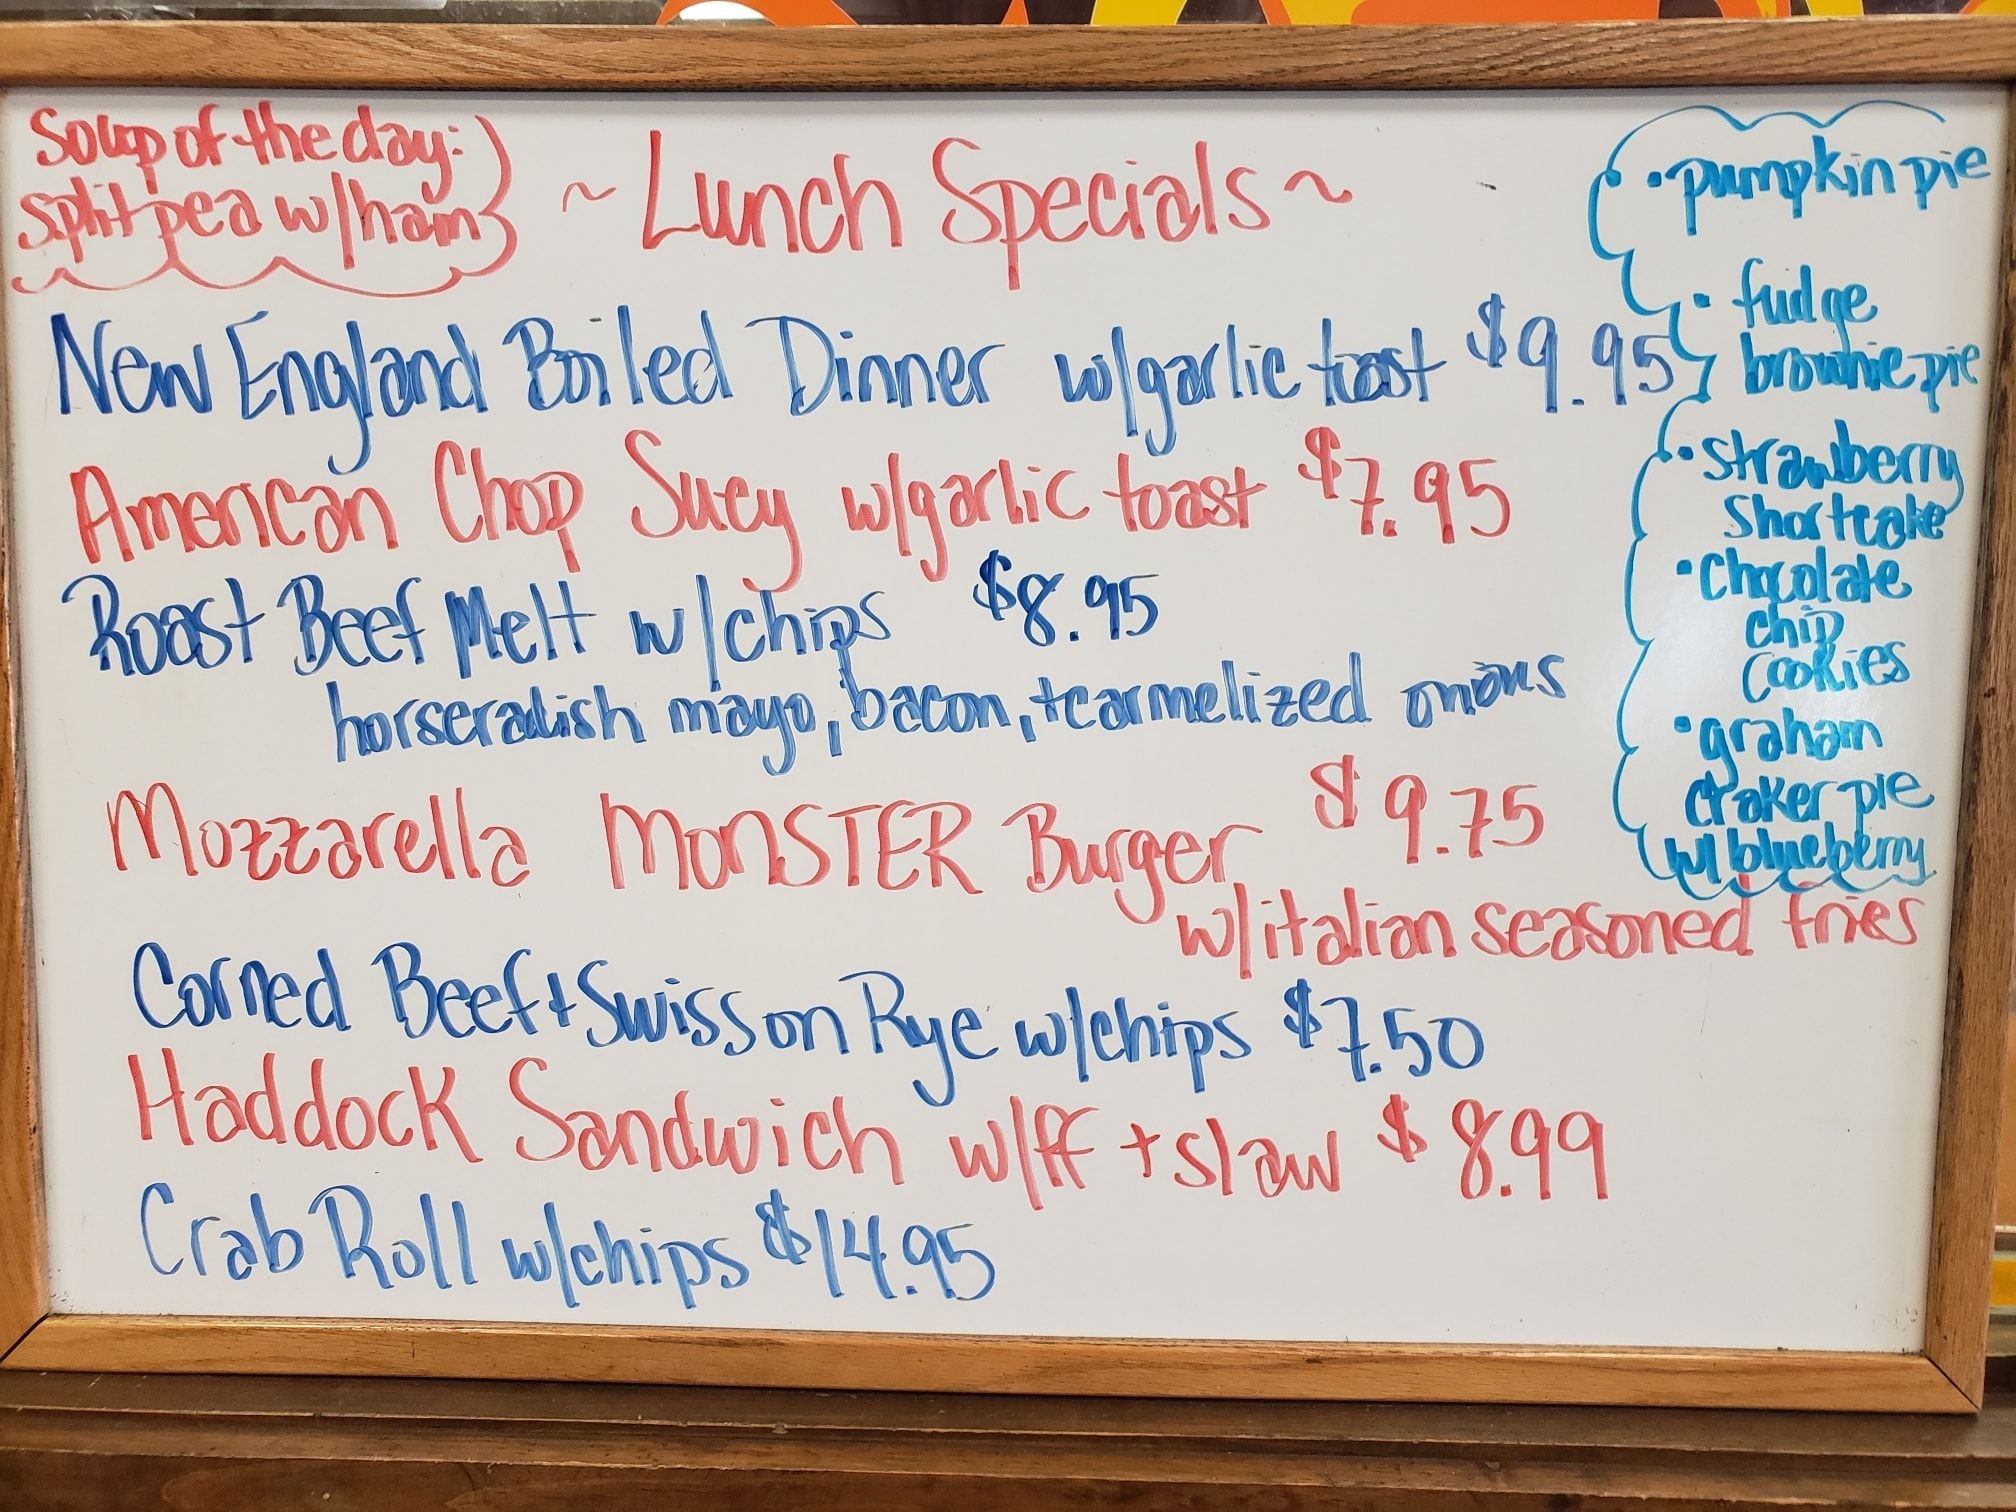 Soup of the day:
split pea w/ham
~ Lunch Specials ~
New England Boiled Dinner w/garlic toast $9.95
American Chop Suey w/garlic toast $7.95
Roast Beef Melt w/chips $8.95
horseradish mayo, bacon, + carmelized onions
Mozzarella MONSTER Burger $9.75
w/italian seasoned fries
Corned Beef + Swiss on Rye w/chips $7.50
Haddock Sandwich w/ff + slaw $8.99
Crab Roll w/chips $14.95
• pumpkin pie
• fudge
brownie pie
• strawberry
shortcake
• Chocolate
chip
cookies
• graham
craker pie
w/ blueberry